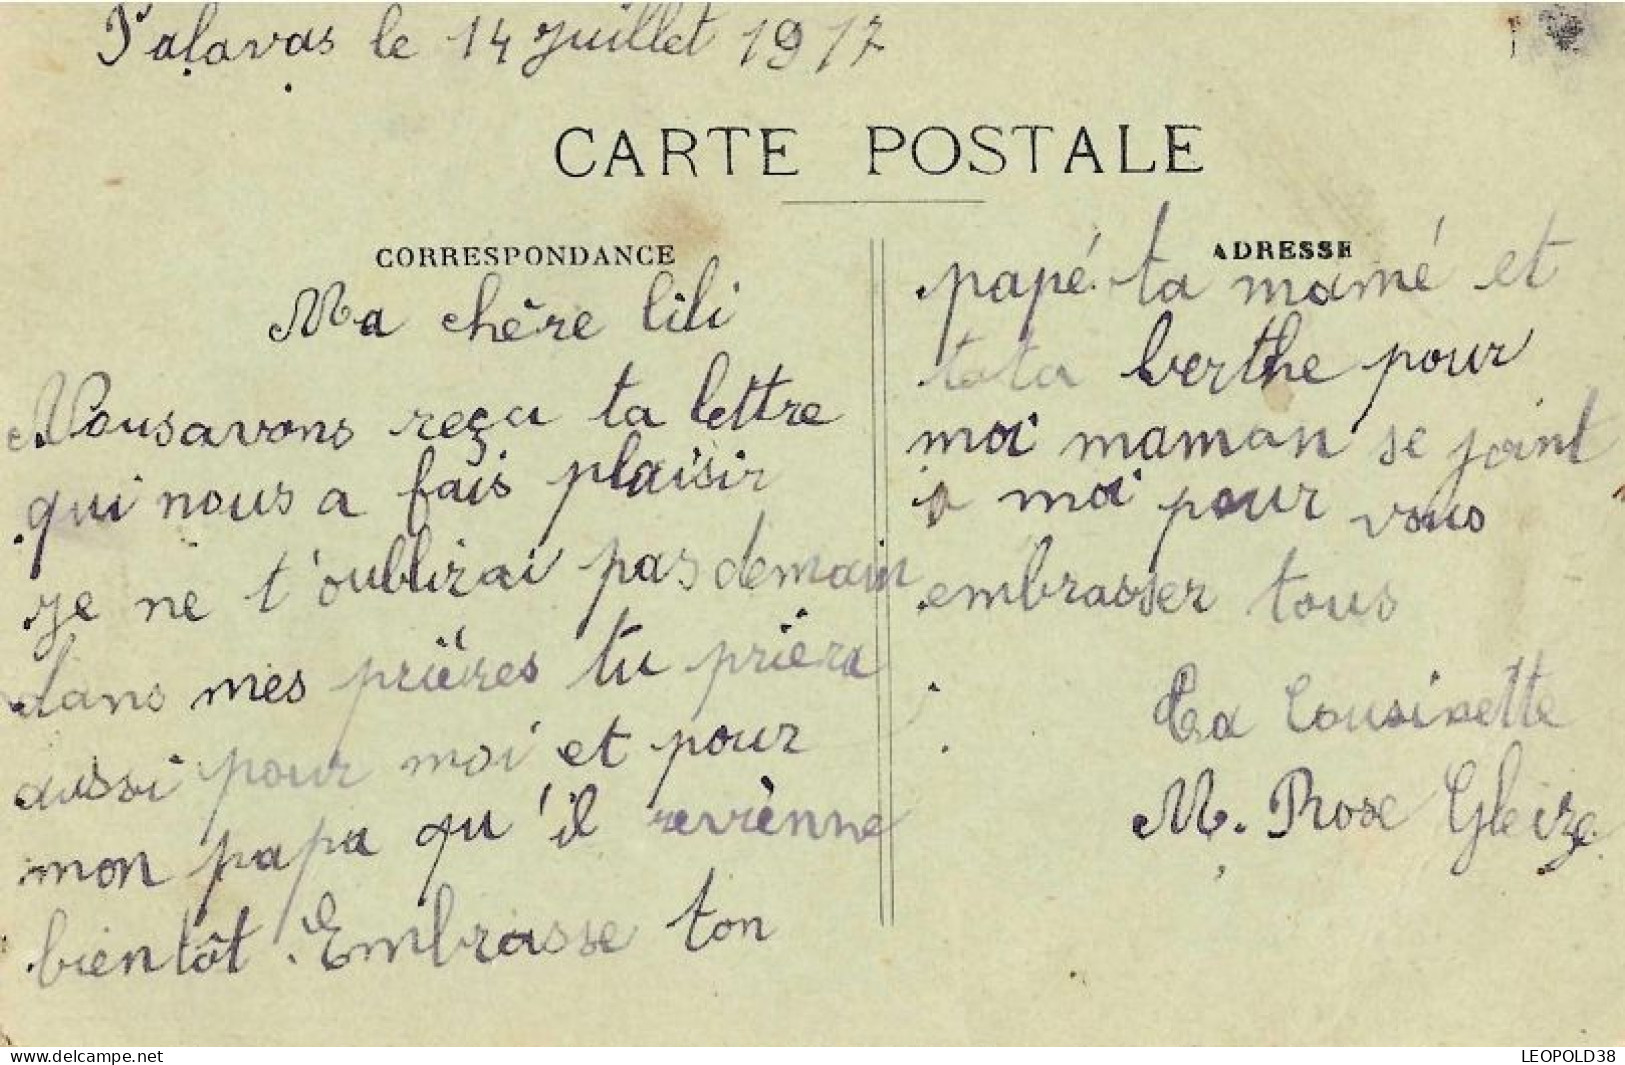 Palavas le 14 Juillet 1917
CARTE POSTALE
CORRESPONDANCE
Ma chère lili
Nous avons reçu ta lettre
qui nous a fais plaisir
je ne t'oublirai pas demain
dans mes prières tu prièra
aussi pour moi et pour
mon papa qu'il revienne
bientôt. Embrasse ton
ADRESSE
papé ta mamé et
tata berthe pour
moi maman se joint
a moi pour vous
embrasser tous
Ta Cousinette
M. Rose Gleize
LEOPOLD38
www.delcampe.net